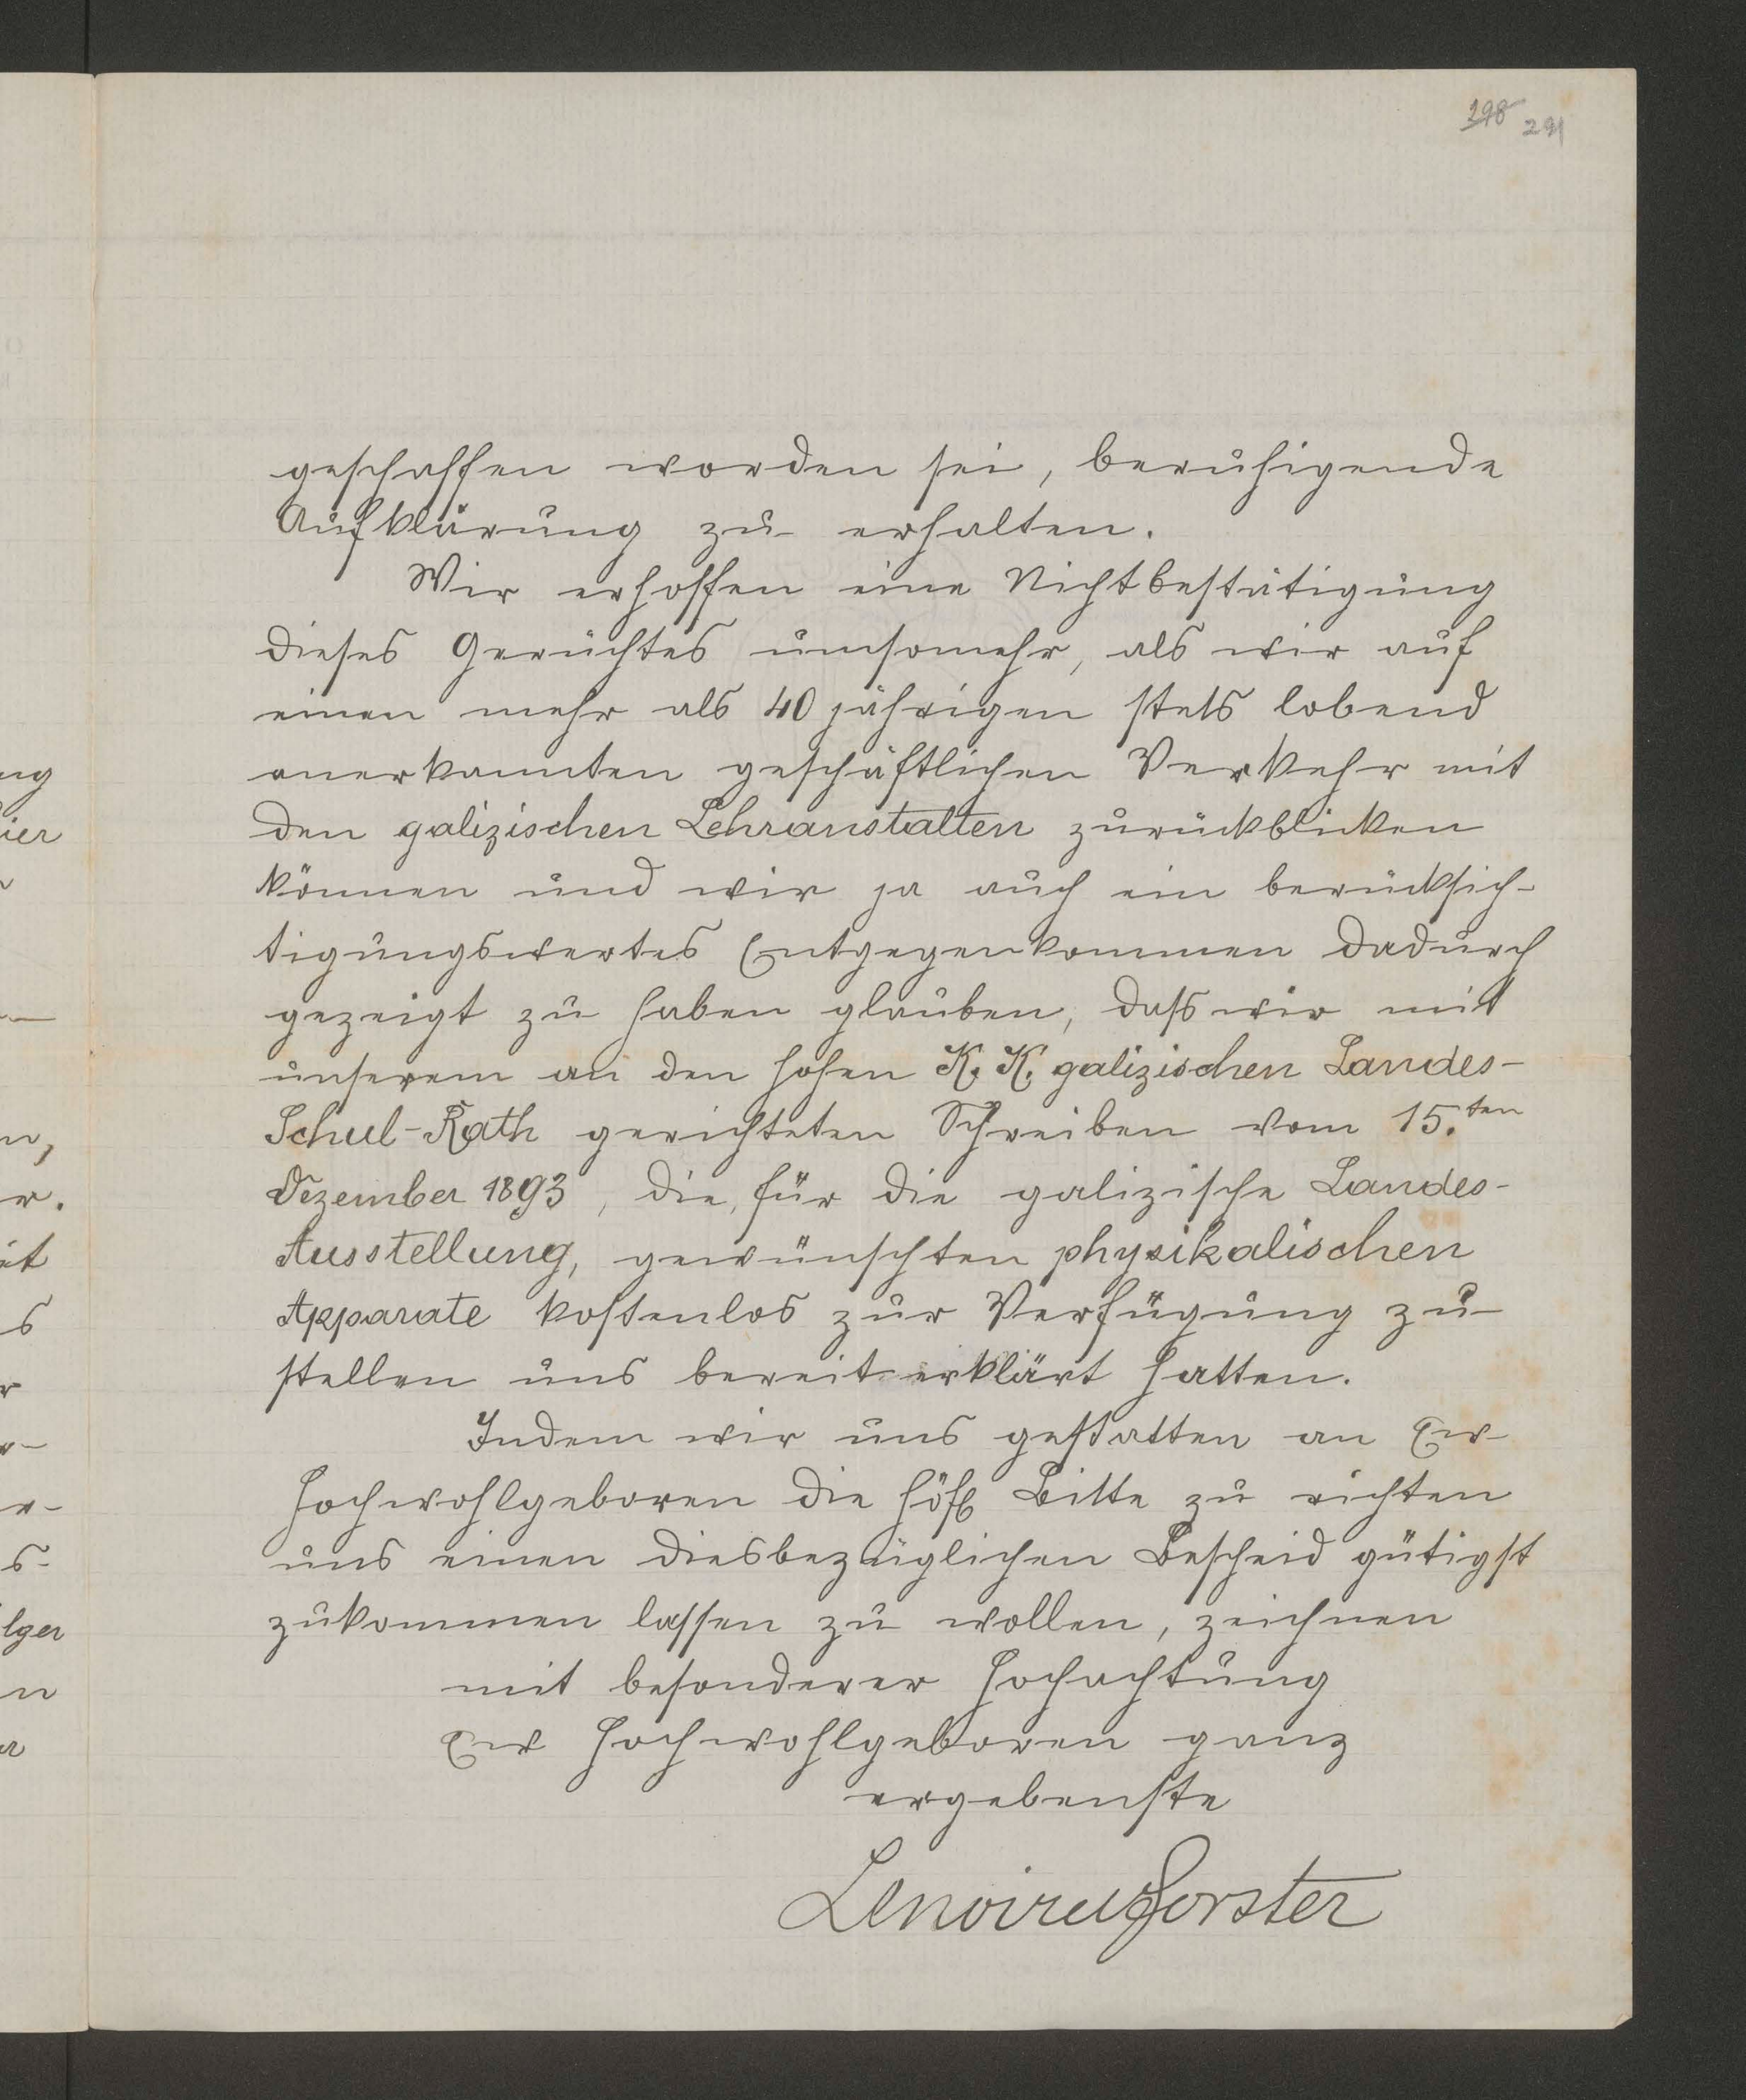 298 291
geschaffen worden sei, beruhigende
Aufklärung zu erhalten.
Wir erhoffen eine Nichtbestätigung
dieses Gerüchtes umsomehr, als wir auf
einen mehr als 40 jährigen stets lobend
anerkannten geschäftlichen Verkehr mit
den galizischen Lehranstalten zurückblicken
können und wir ja auch ein berücksich-
tigungswertes Entgegenkommen dadurch
gezeigt zu haben glauben, dass wir mit
unserem an den hohen K. K. galizischen Landes-
Schul-Rath gerichteten Schreiben vom 15.ten
Dezember 1893, die, für die galizische Landes-
Ausstellung, gewünschten physikalischen
Apparate kostenlos zur Verfügung zu
stellen uns bereit erklärt hatten.
Indem wir uns gestatten an Ew
Hochwohlgeboren die höfl Bitte zu richten
uns einen diesbezüglichen Bescheid gütigst
zukommen lassen zu wollen, zeichnen
mit besonderer Hochachtung
Ew Hochwohlgeboren ganz
ergebenste
Lenoir u Forster